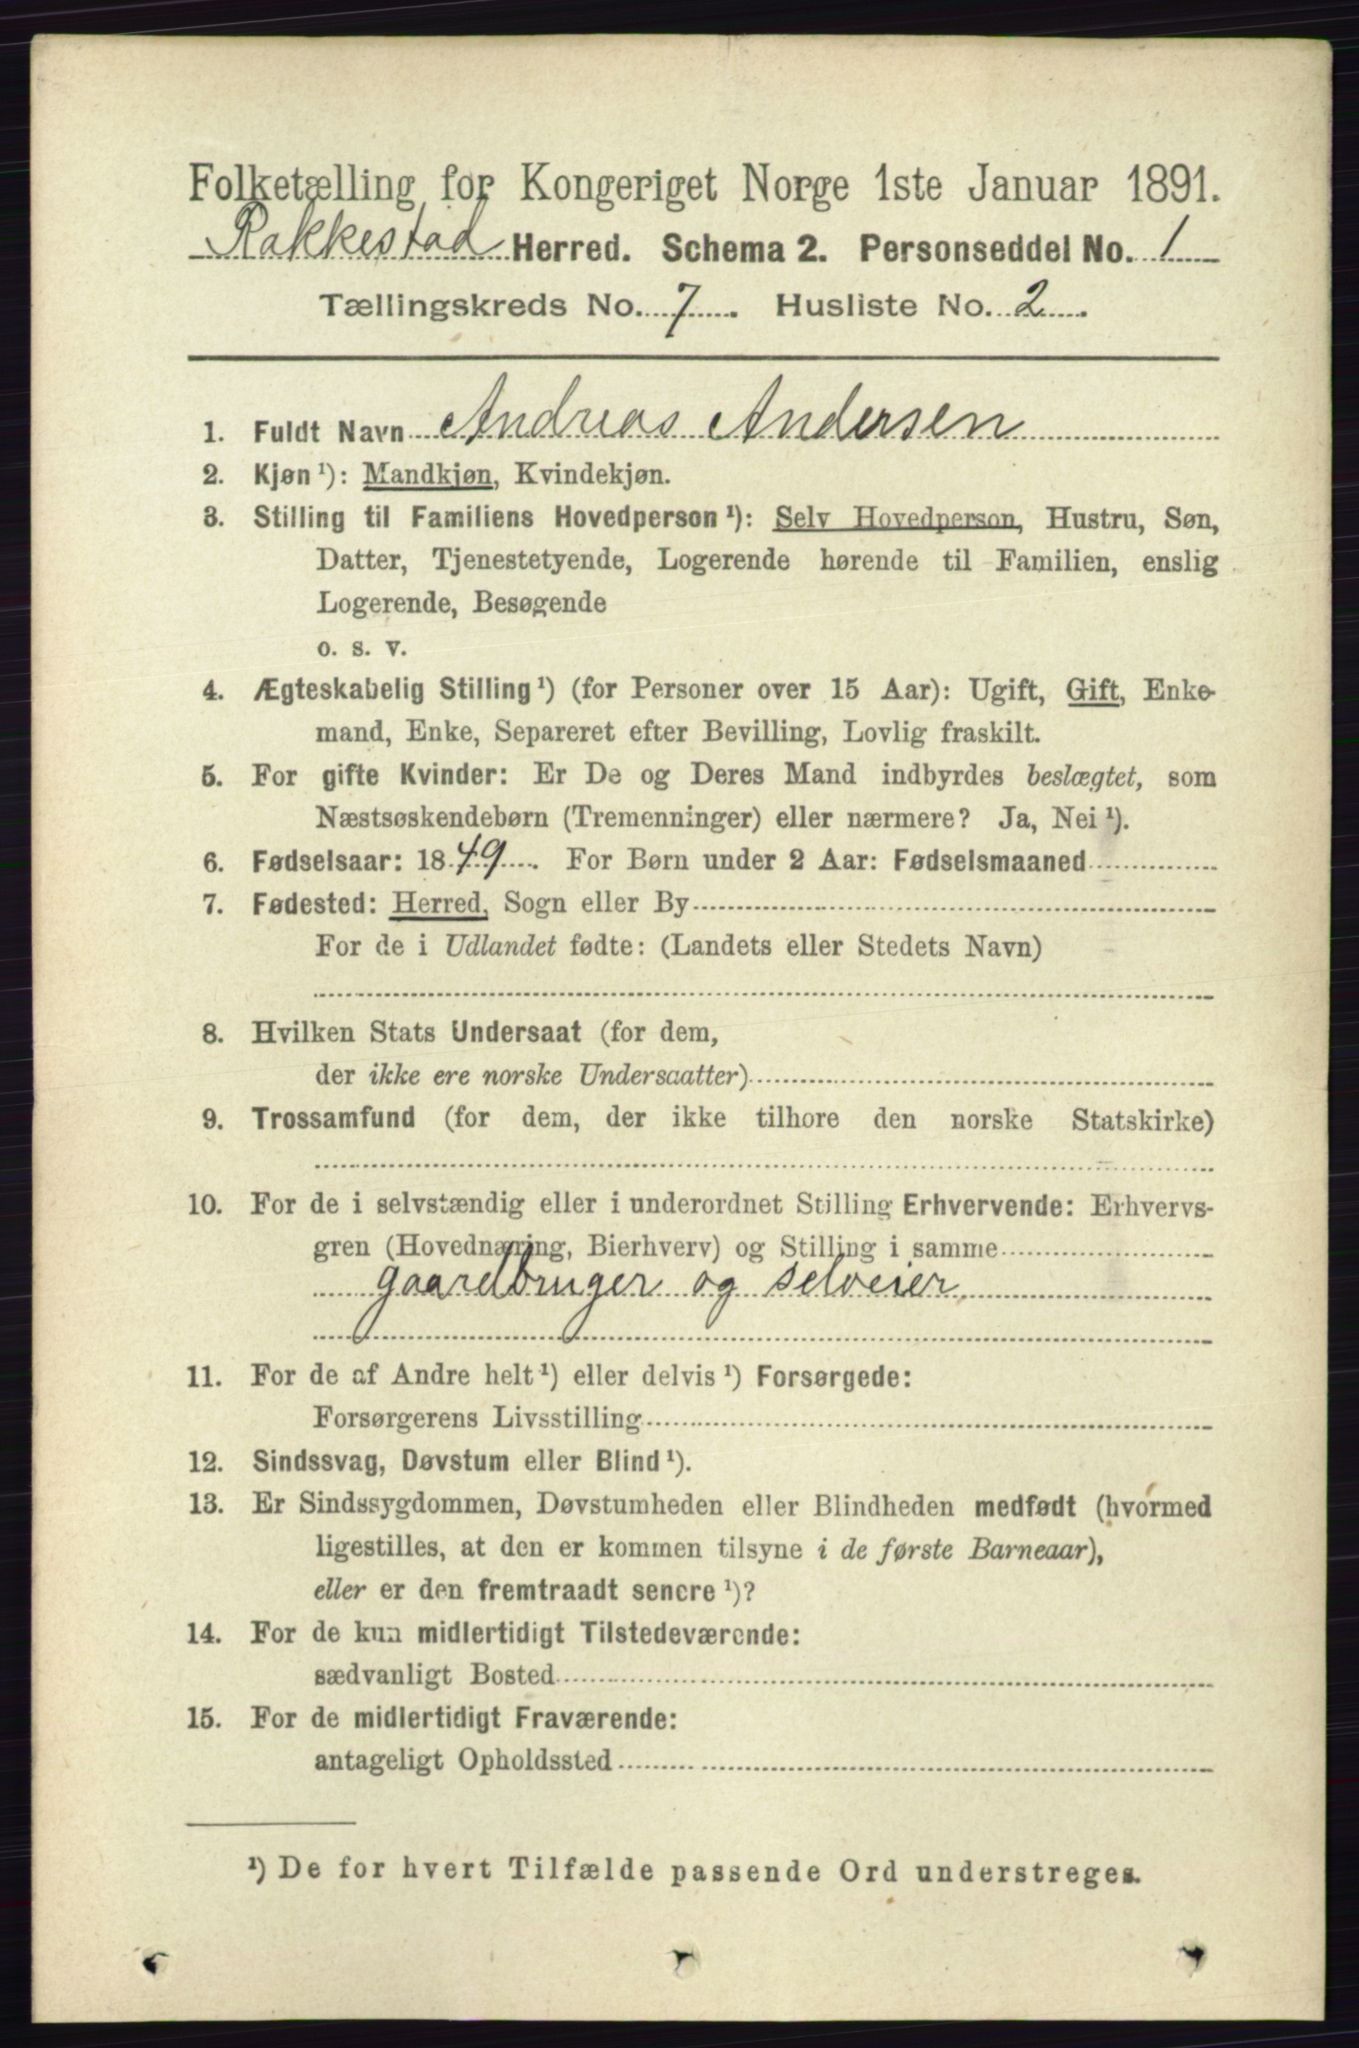 Folketælling for Kongeriget Norge 1ste Januar 1891.
Rakkestad Herred. Schema 2. Personseddel No. 1
Tællingskreds No. 7. Husliste No. 2.
1. Fuldt Navn Andreas Andersen
2. Kjøn ¹): Mandkjøn, Kvindekjøn.
3. Stilling til Familiens Hovedperson ¹): Selv Hovedperson, Hustru, Søn,
Datter, Tjenestetyende, Logerende hørende til Familien, enslig
Logerende, Besøgende
o. s. v.
4. Ægteskabelig Stilling ¹) (for Personer over 15 Aar): Ugift, Gift, Enke-
mand, Enke, Separeret efter Bevilling, Lovlig fraskilt.
5. For gifte Kvinder: Er De og Deres Mand indbyrdes beslægtet, som
Næstsøskendebørn (Tremenninger) eller nærmere? Ja, Nei ¹).
6. Fødselsaar: 1849. For Børn under 2 Aar: Fødselsmaaned
7. Fødested: Herred, Sogn eller By
For de i Udlandet fødte: (Landets eller Stedets Navn)
8. Hvilken Stats Undersaat (for dem,
der ikke ere norske Undersaatter)
9. Trossamfund (for dem, der ikke tilhore den norske Statskirke)
10. For de i selvstændig eller i underordnet Stilling Erhvervende: Erhvervs-
gren (Hovednæring, Bierhverv) og Stilling i samme
gaardbruger og selveier
11. For de af Andre helt ¹) eller delvis ¹) Forsørgede:
Forsørgerens Livsstilling
12. Sindssvag, Døvstum eller Blind ¹).
13. Er Sindssygdommen, Døvstumheden eller Blindheden medfødt (hvormed
ligestilles, at den er kommen tilsyne i de første Barneaar),
eller er den fremtraadt senere ¹)?
14. For de kun midlertidigt Tilstedeværende:
sædvanligt Bosted
15. For de midlertidigt Fraværende:
antageligt Opholdssted
¹) De for hvert Tilfælde passende Ord understreges.